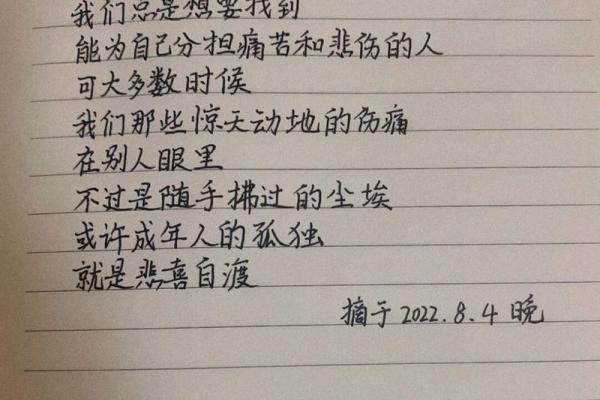 我们总是想要找到
能为自己分担痛苦和悲伤的人
可大多数时候
我们那些惊天动地的伤痛
在别人眼里
不过是随手拂过的尘埃
或许成年人的孤独
就是悲喜自渡
摘于2022.8.4 晚